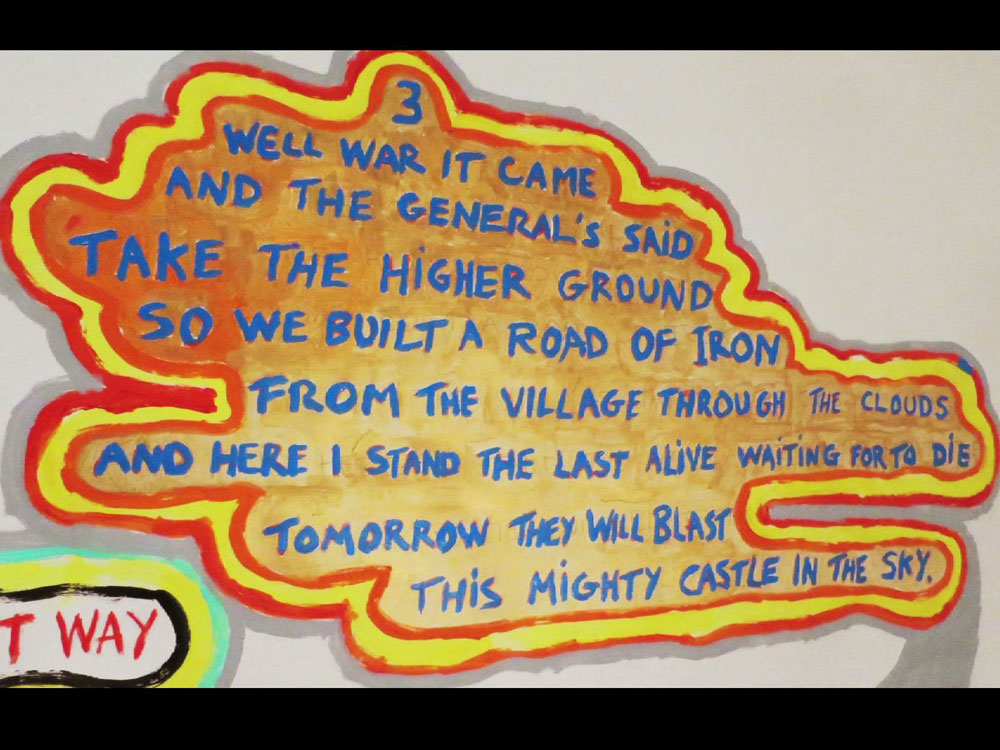 3
WELL WAR IT CAME
AND THE GENERAL'S SAID
TAKE THE HIGHER GROUND
SO WE BUILT A ROAD OF IRON
FROM THE VILLAGE THROUGH THE CLOUDS
AND HERE I STAND THE LAST ALIVE WAITING FOR TO DIE
TOMORROW THEY WILL BLAST
THIS MIGHTY CASTLE IN THE SKY.
T WAY